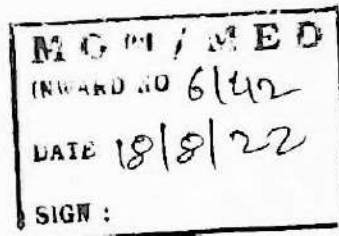 MGM / MED
INWARD NO 6/42
DATE 18/8/22
SIGN :